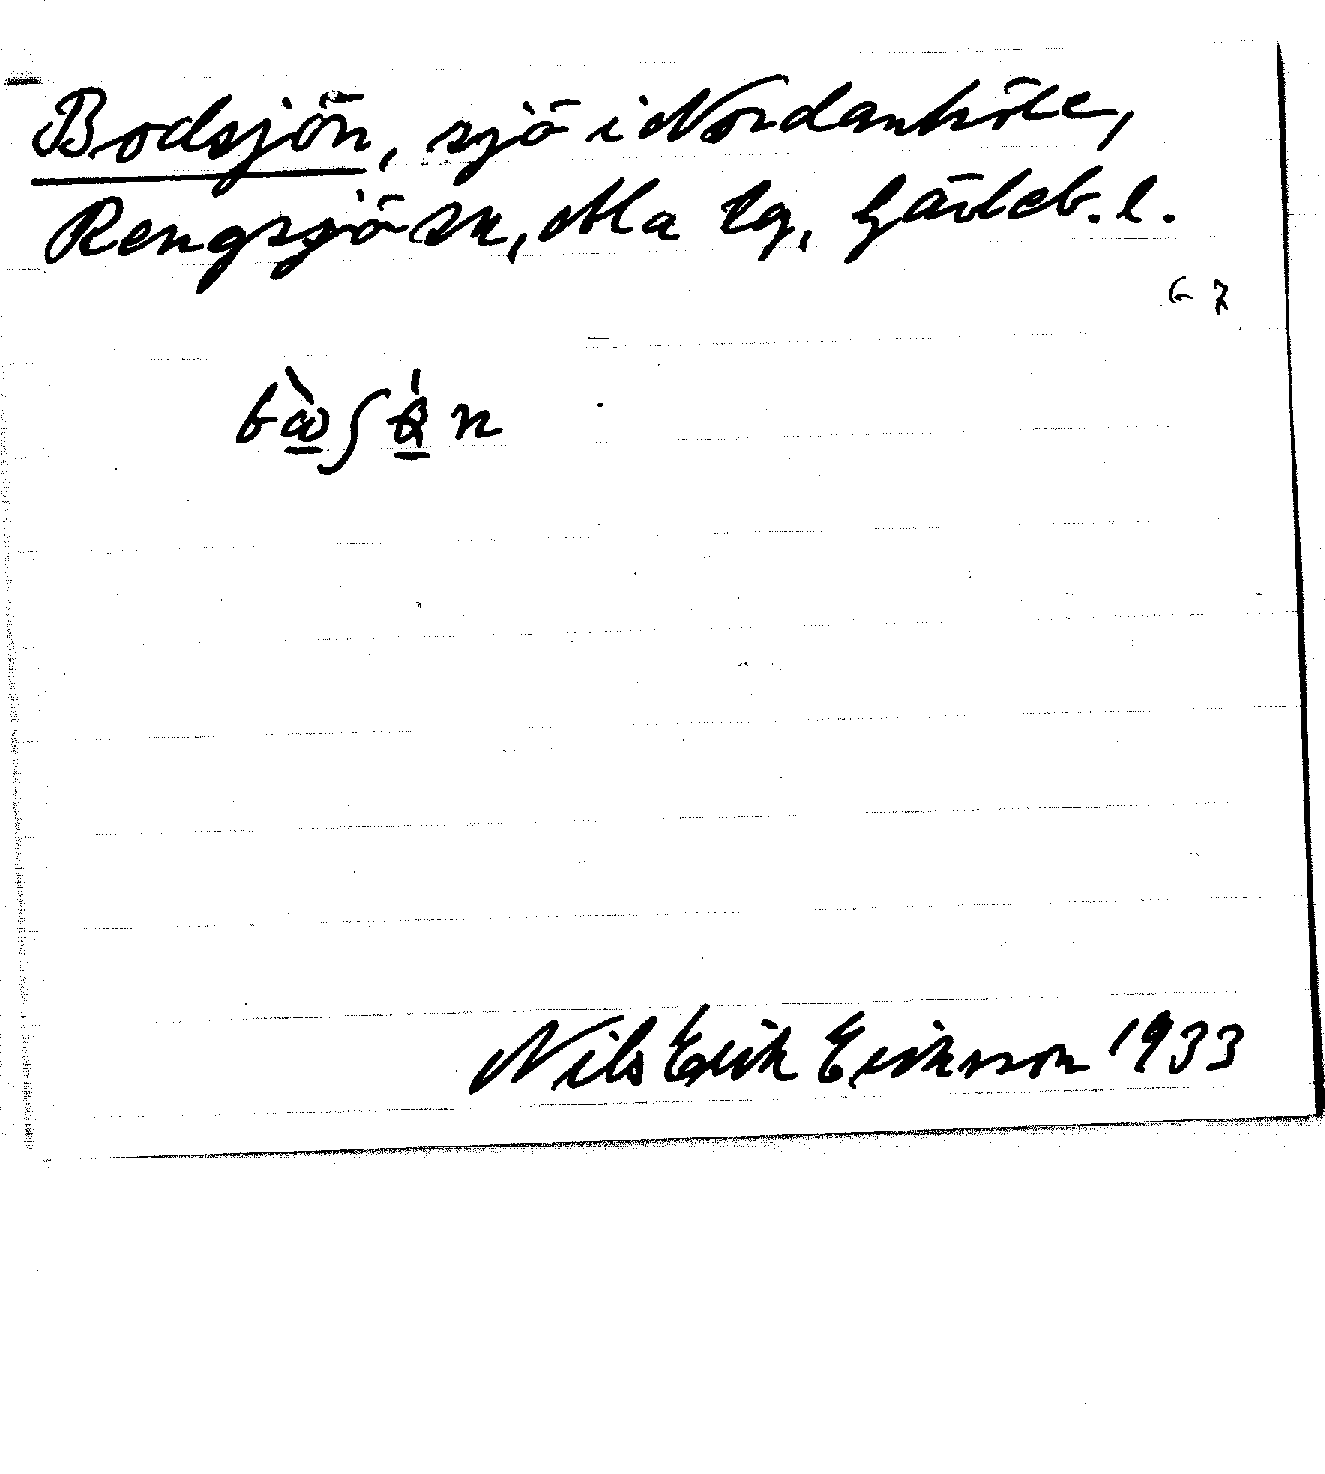 Bodsjön, sjö i Nordanhöle,
Rengsjö sn, Ala tg, Gävleb. l.
G 7
Nils Erik Eriksson 1933